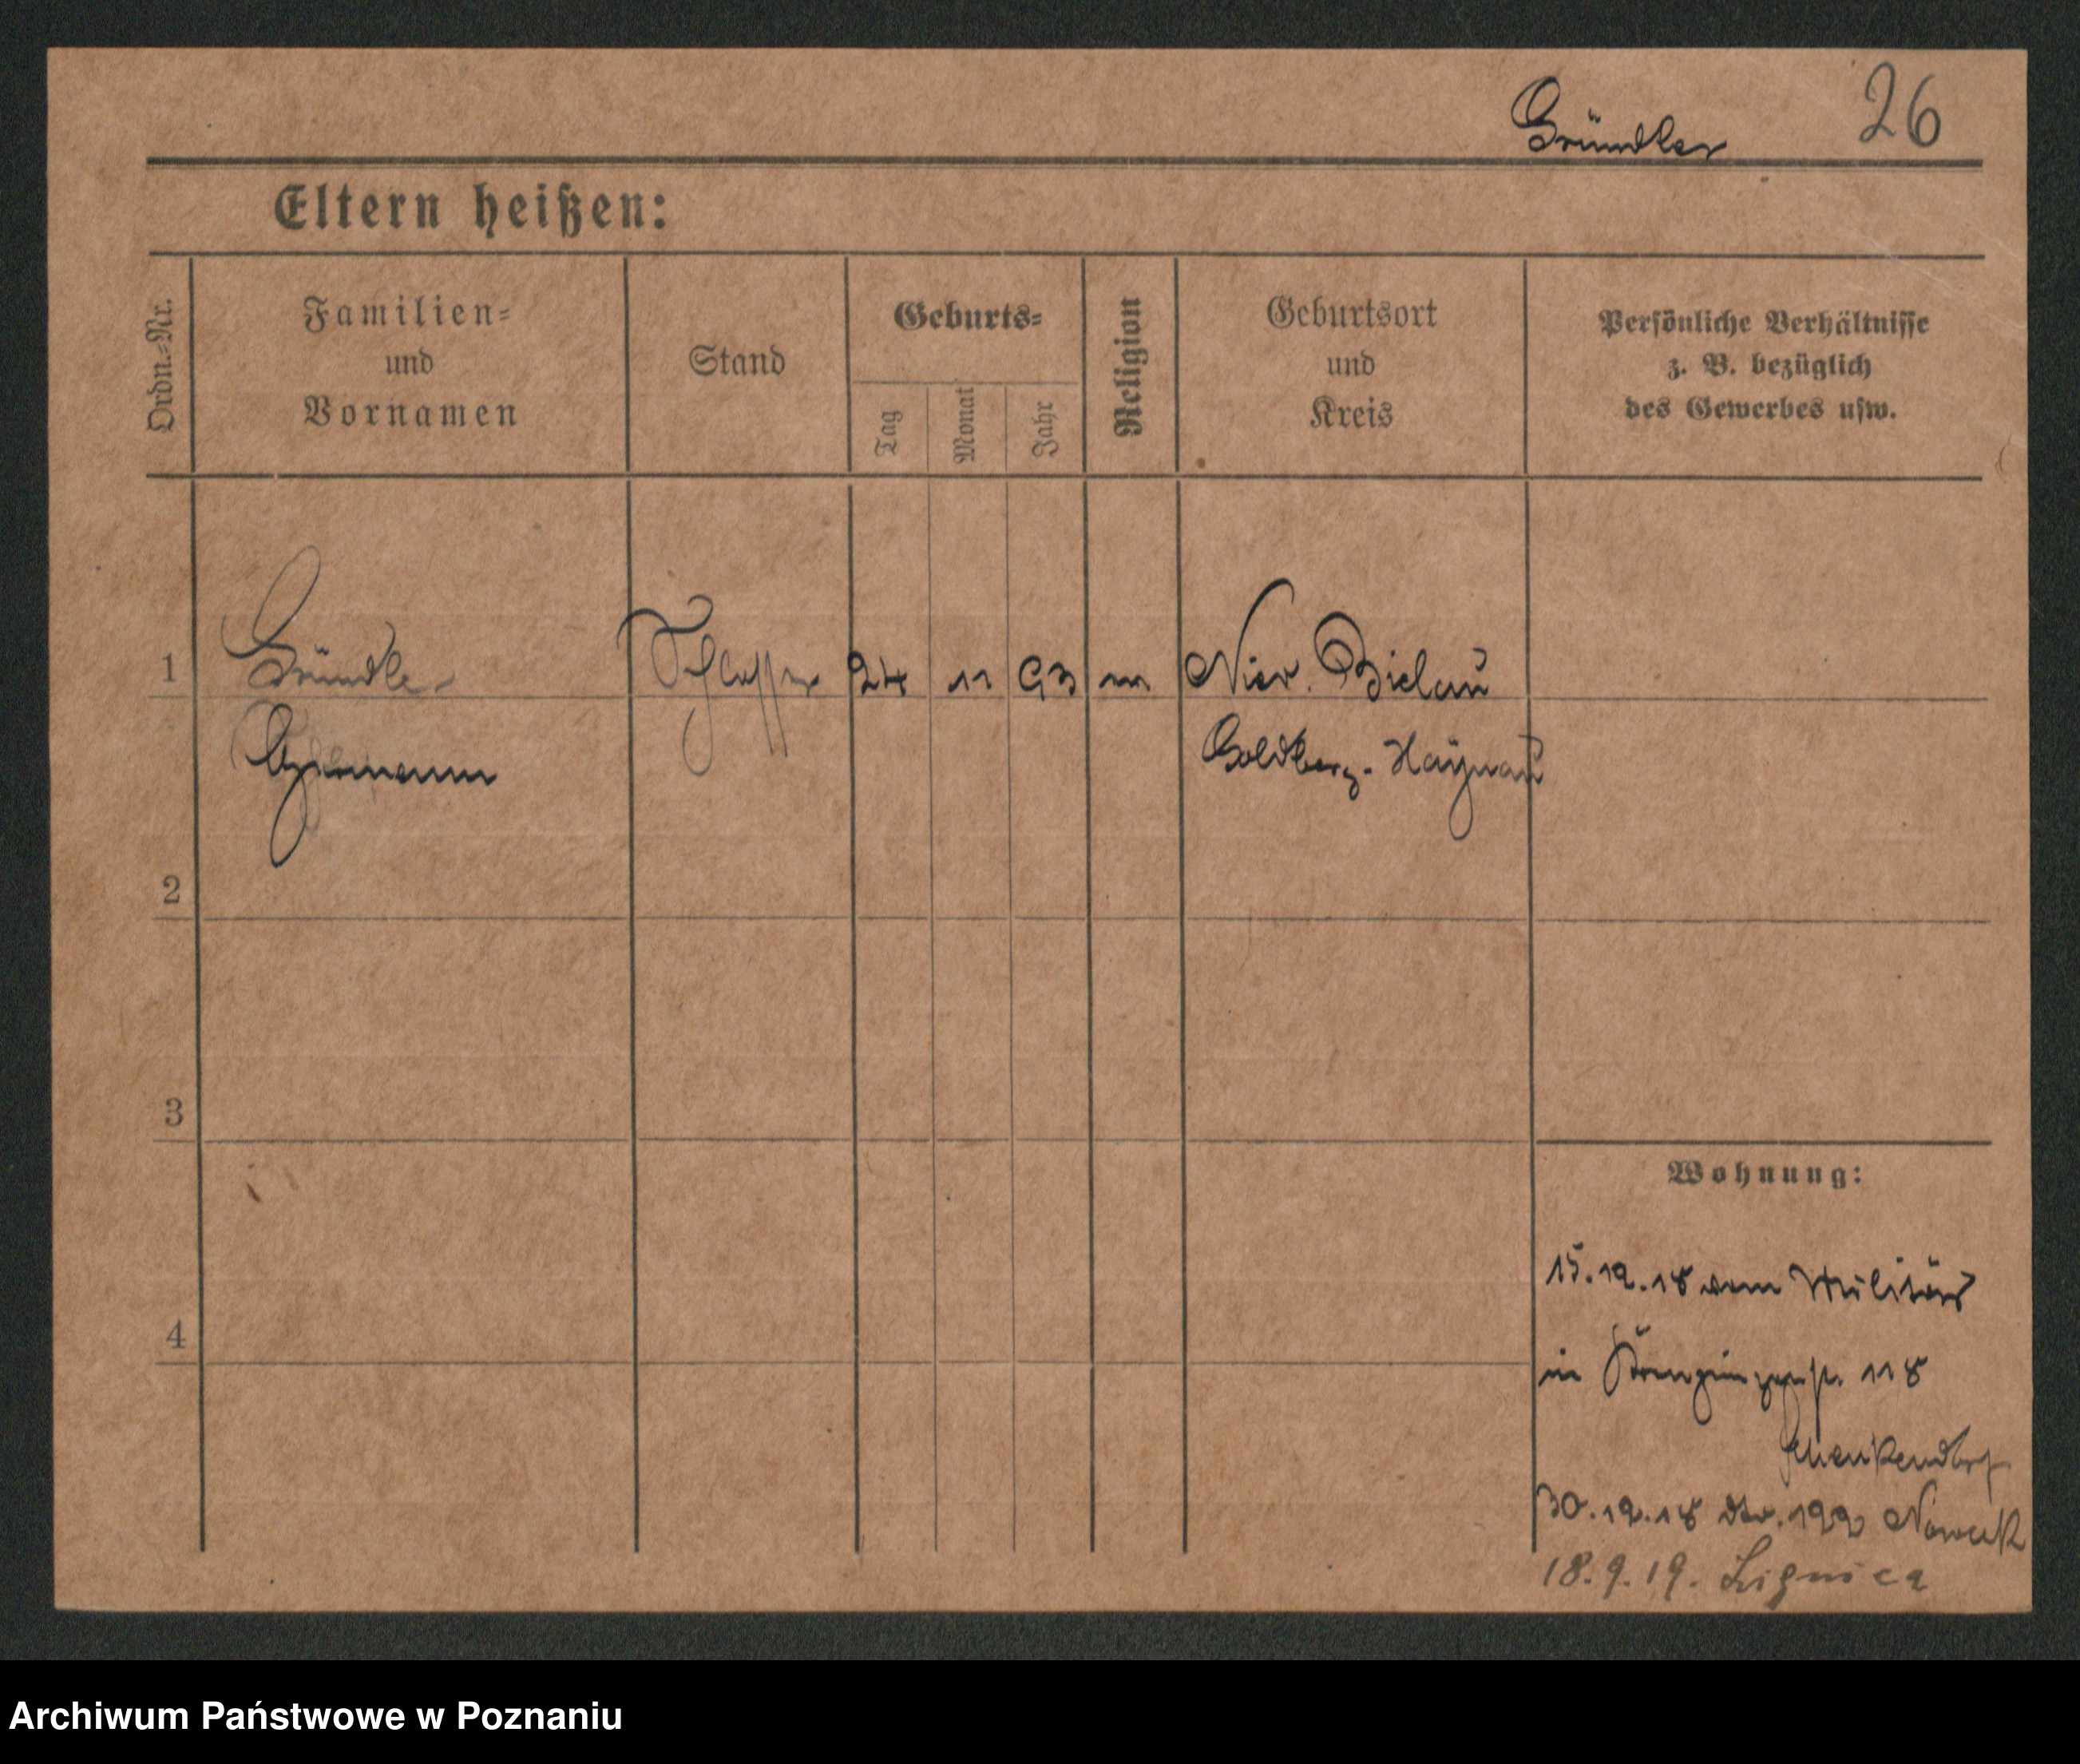 Gründler 26
Eltern heißen:
Ordn.=Nr.
Familien=
und
Vornamen
Stand
Geburts=
Tag
Monat
Jahr
Religion
Geburtsort
und
Kreis
Persönliche Verhältnisse
z. B. bezüglich
des Gewerbes usw.
1 Gründler Schlosser 24 11 93 Nier. Bielau
Goldberg-Haynau
2
3
Wohnung:
15.12.18 vom Militär
4
in 118
Schenkendorf
30.12.18 122 Nowak
18.9.19. Lignica
Archiwum Państwowe w Poznaniu